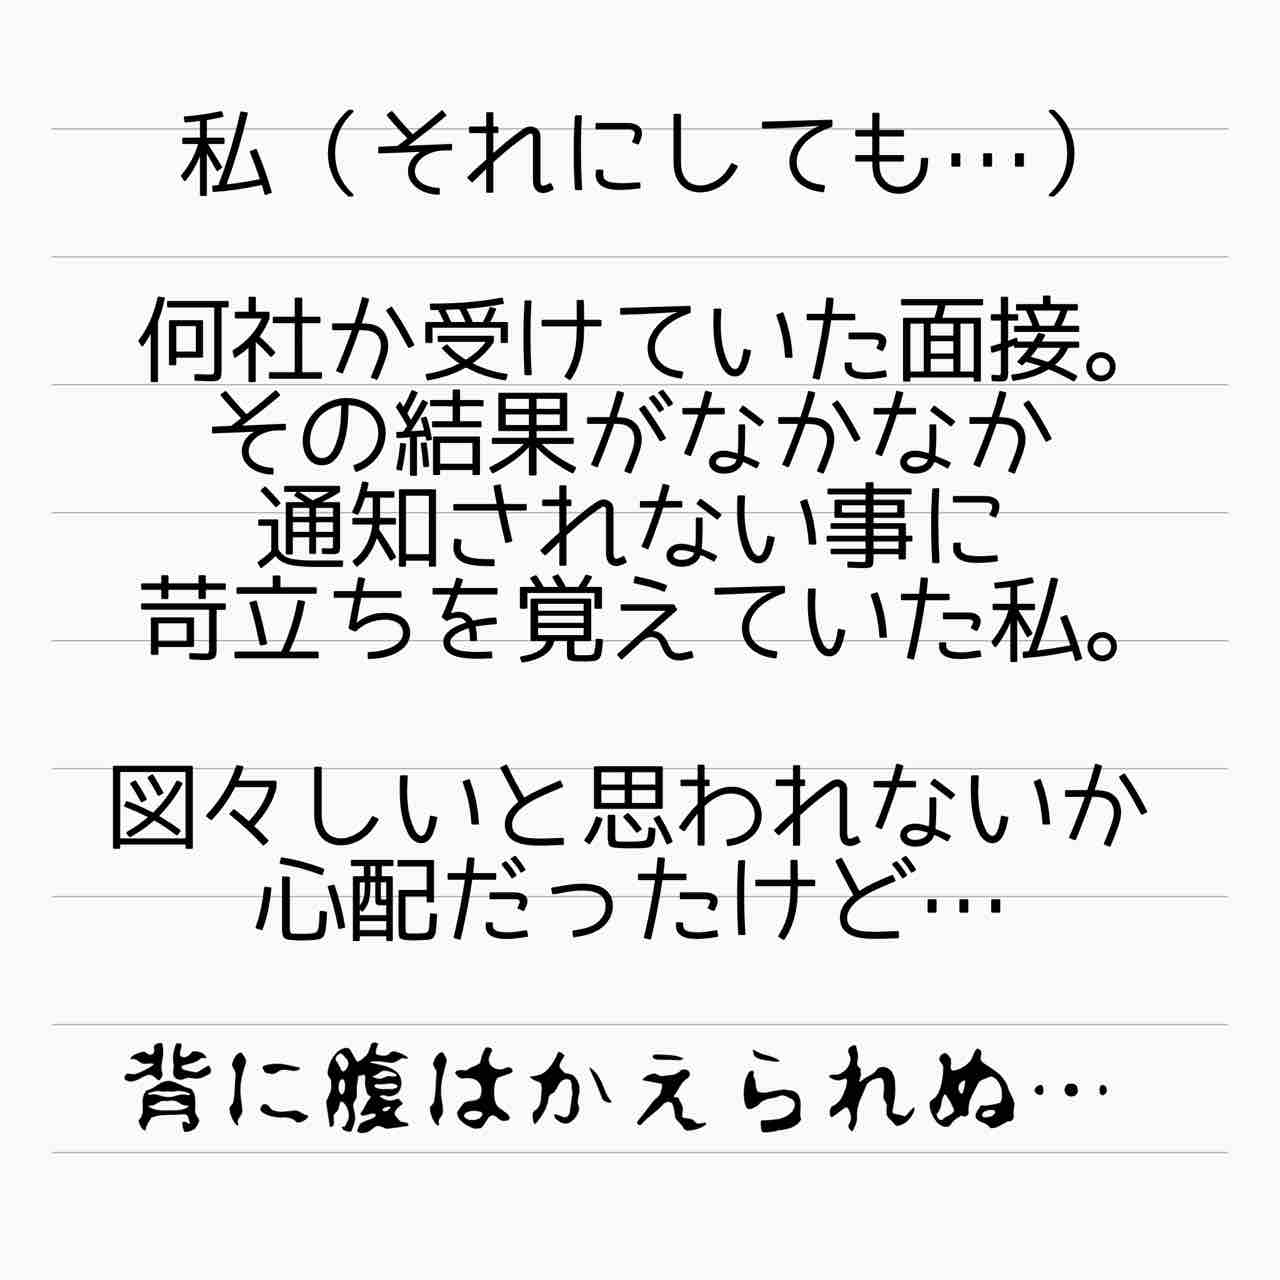 私（それにしても…）
何社か受けていた面接。
その結果がなかなか
通知されない事に
苛立ちを覚えていた私。
図々しいと思われないか
心配だったけど…
背に腹はかえられぬ…